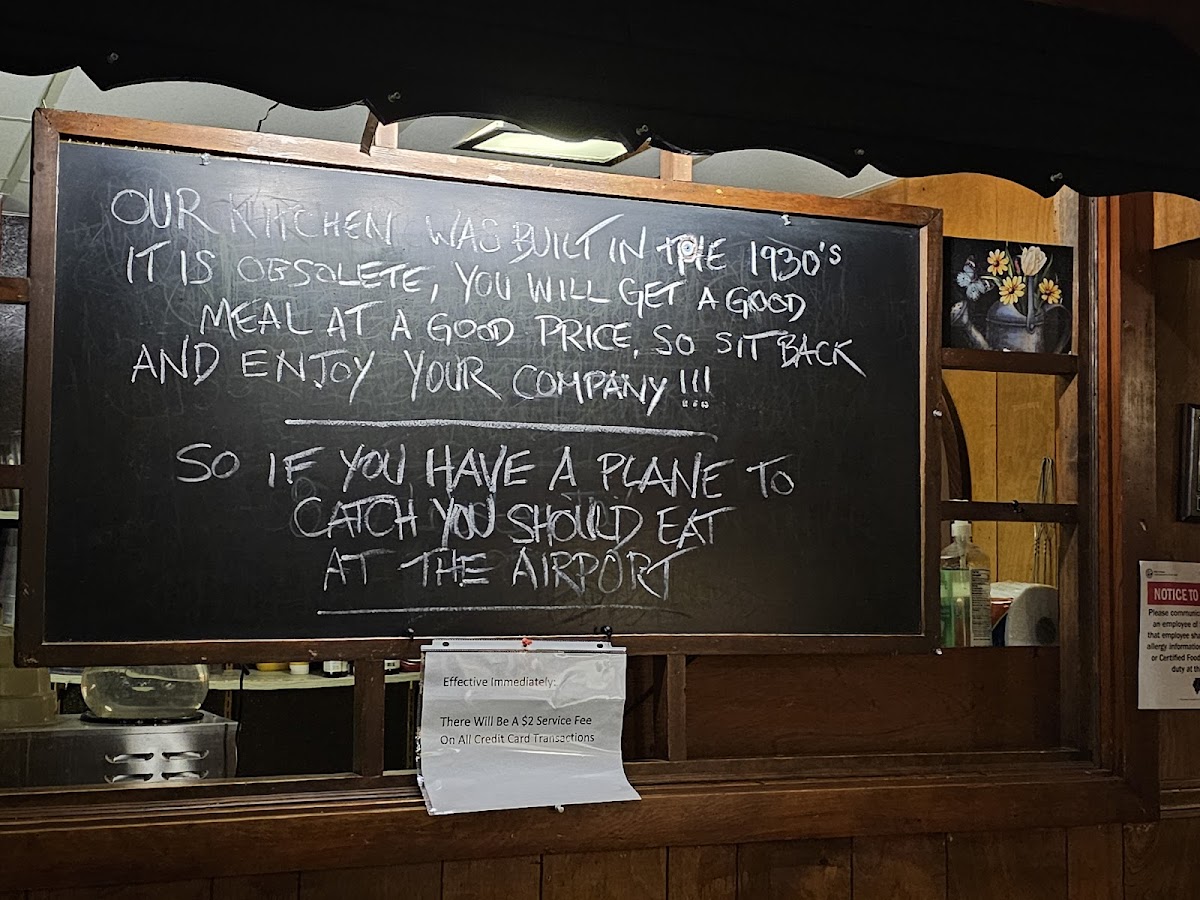 OUR KITCHEN WAS BUILT IN THE 1930's
IT IS OBSOLETE, YOU WILL GET A GOOD
MEAL AT A GOOD PRICE, SO SIT BACK
AND ENJOY YOUR COMPANY!!!
SO IF YOU HAVE A PLANE TO
CATCH YOU SHOULD EAT
AT THE AIRPORT
Effective Immediately:
There Will Be A $2 Service Fee
On All Credit Card Transactions
NOTICE TO
Please
an employee of
that employee
allergy information
or Certified
duty at